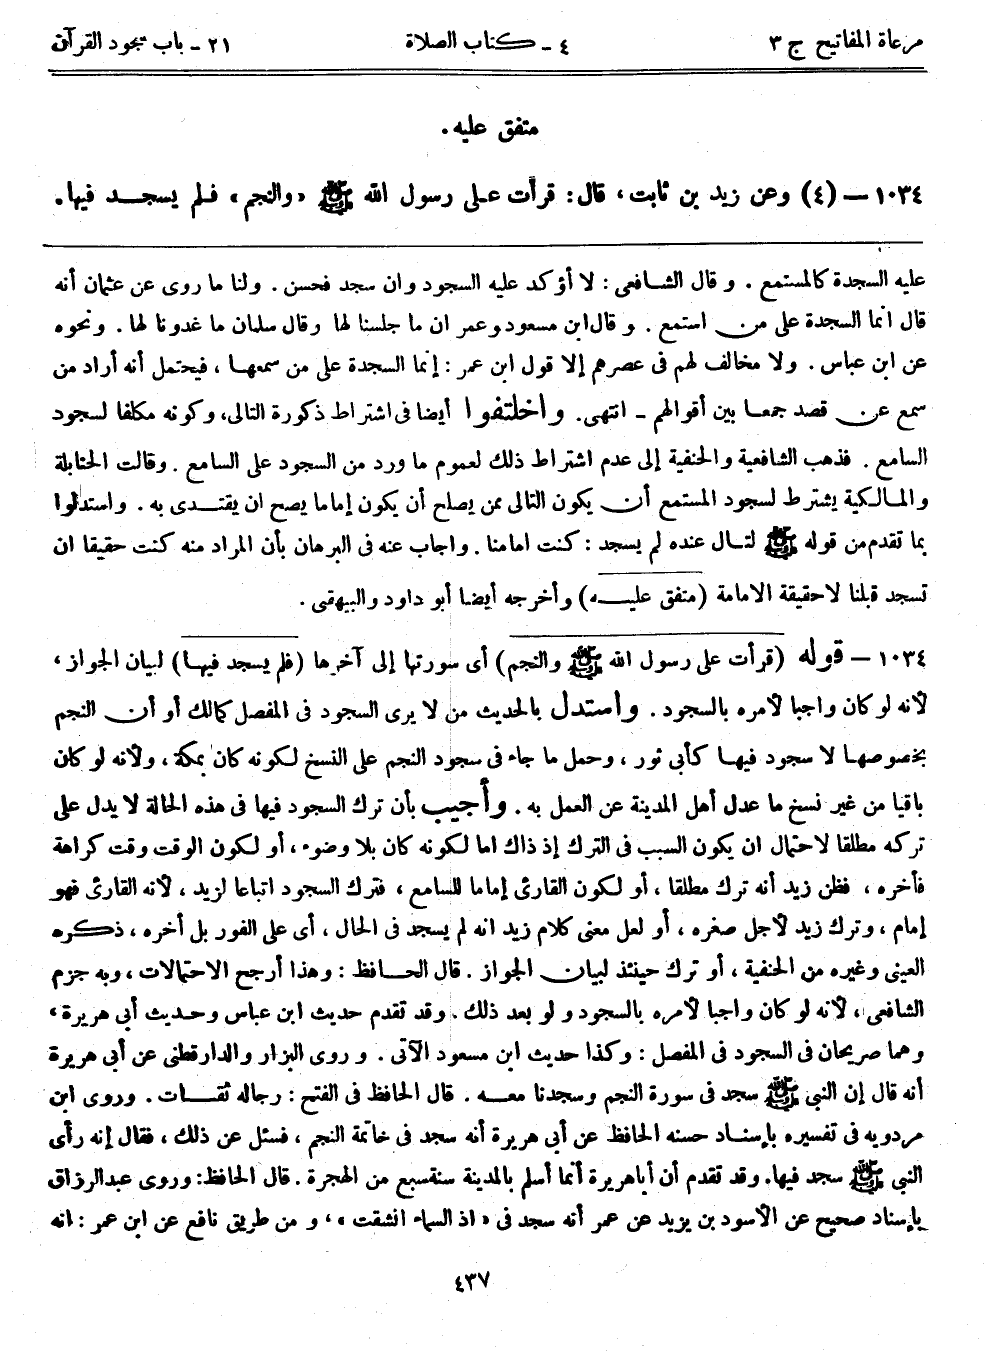 مرعاة المفاتيح ج ٣
٤ ـ كتاب الصلاة
٢١ ـ باب سجود القرآن
متفق عليه.
١٠٣٤ ـ (٤) وعن زيد بن ثابت، قال: قرأت على رسول الله ﷺ «والنجم» فلم يسجد فيها.
عليه السجدة كالمستمع. وقال الشافعي: لا أؤكد عليه السجود وان سجد فحسن. ولنا ما روى عن عثمان أنه
قال انما السجدة على من استمع. وقال ابن مسعود وعمر ان ما جلسنا لها وقال سلمان ما غدونا لها. ونحوه
عن ابن عباس. ولا مخالف لهم فى عصرهم إلا قول ابن عمر: إنما السجدة على من سمعها، فيحتمل أنه أراد من
سمع عن قصد جمعا بين أقوالهم ـ انتهى. واختلفوا أيضا فى اشتراط ذكورة التالى، وكونه مكلفا لسجود
السامع. فذهب الشافعية والحنفية إلى عدم اشتراط ذلك لعموم ما ورد من السجود على السامع. وقالت الحنابلة
والمالكية يشترط لسجود المستمع أن يكون التالى ممن يصلح أن يكون إماما يصح ان يقتدى به. واستدلوا
بما تقدم من قوله ﷺ لتال عنده لم يسجد: كنت امامنا. واجاب عنه فى البرهان بأن المراد منه كنت حقيقا ان
تسجد قبلنا لا حقيقة الامامة (متفق عليه) وأخرجه أيضا أبو داود والبيهقى.
١٠٣٤ ـ قوله (قرأت على رسول الله ﷺ والنجم) أى سورتها إلى آخرها (فلم يسجد فيها) لبيان الجواز،
لأنه لو كان واجبا لأمره بالسجود. واستدل بالحديث من لا يرى السجود فى المفصل كمالك أو أن النجم
بخصوصها لا سجود فيها كأبى ثور، وحمل ما جاء فى سجود النجم على النسخ لكونه كان بمكة، ولأنه لو كان
باقيا من غير نسخ ما عدل أهل المدينة عن العمل به. وأجيب بأن ترك السجود فيها فى هذه الحالة لا يدل على
تركه مطلقا لاحتمال ان يكون السبب فى الترك إذ ذاك اما لكونه كان بلا وضوء، أو لكون الوقت وقت كراهة
فأخره، فظن زيد أنه ترك مطلقا، أو لكون القارئ إماما للسامع، فترك السجود اتباعا لزيد، لأنه القارئ فهو
إمام، وترك زيد لأجل صغره، أو لعل معنى كلام زيد انه لم يسجد فى الحال، أى على الفور بل أخره، ذكره
العينى وغيره من الحنفية، أو ترك حينئذ لبيان الجواز. قال الحافظ: وهذا أرجح الاحتمالات، وبه جزم
الشافعى، لأنه لو كان واجبا لأمره بالسجود ولو بعد ذلك. وقد تقدم حديث ابن عباس وحديث أبى هريرة،
وهما صريحان فى السجود فى المفصل: وكذا حديث ابن مسعود الآتى. وروى البزار والدارقطنى عن أبى هريرة
أنه قال إن النبي ﷺ سجد فى سورة النجم وسجدنا معه. قال الحافظ فى الفتح: رجاله ثقات. وروى ابن
مردويه فى تفسيره بإسناد حسنه الحافظ عن أبى هريرة أنه سجد فى خاتمة النجم، فسئل عن ذلك، فقال إنه رأى
النبي ﷺ سجد فيها. وقد تقدم أن أبا هريرة أنما أسلم بالمدينة سنة سبع من الهجرة. قال الحافظ: وروى عبدالرزاق
بإسناد صحيح عن الأسود بن يزيد عن عمر أنه سجد فى «اذ السماء انشقت»، ومن طريق نافع عن ابن عمر: انه
٤٣٧